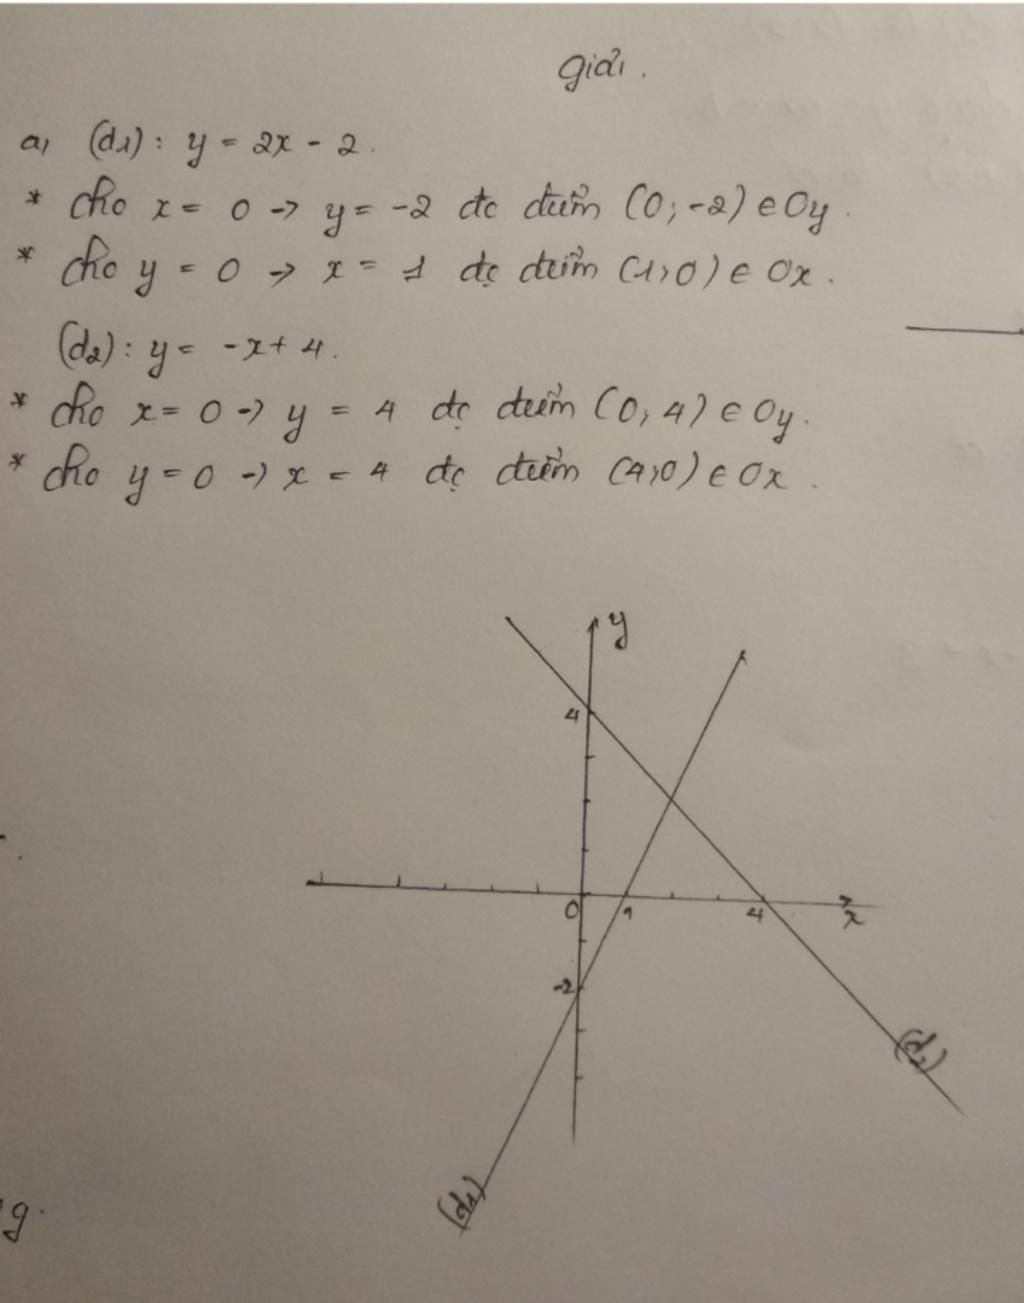 Giải.
a, (d1): y = 2x - 2.
* Cho x = 0 -> y = -2 đc điểm (0; -2) ∈ Oy.
* Cho y = 0 -> x = 1 đc điểm (1; 0) ∈ Ox.
(d2): y = -x + 4.
* Cho x = 0 -> y = 4 đc điểm (0, 4) ∈ Oy.
* Cho y = 0 -> x = 4 đc điểm (4; 0) ∈ Ox.
y
4
0 1 4 x
-2
(d2)
(d1)
g.